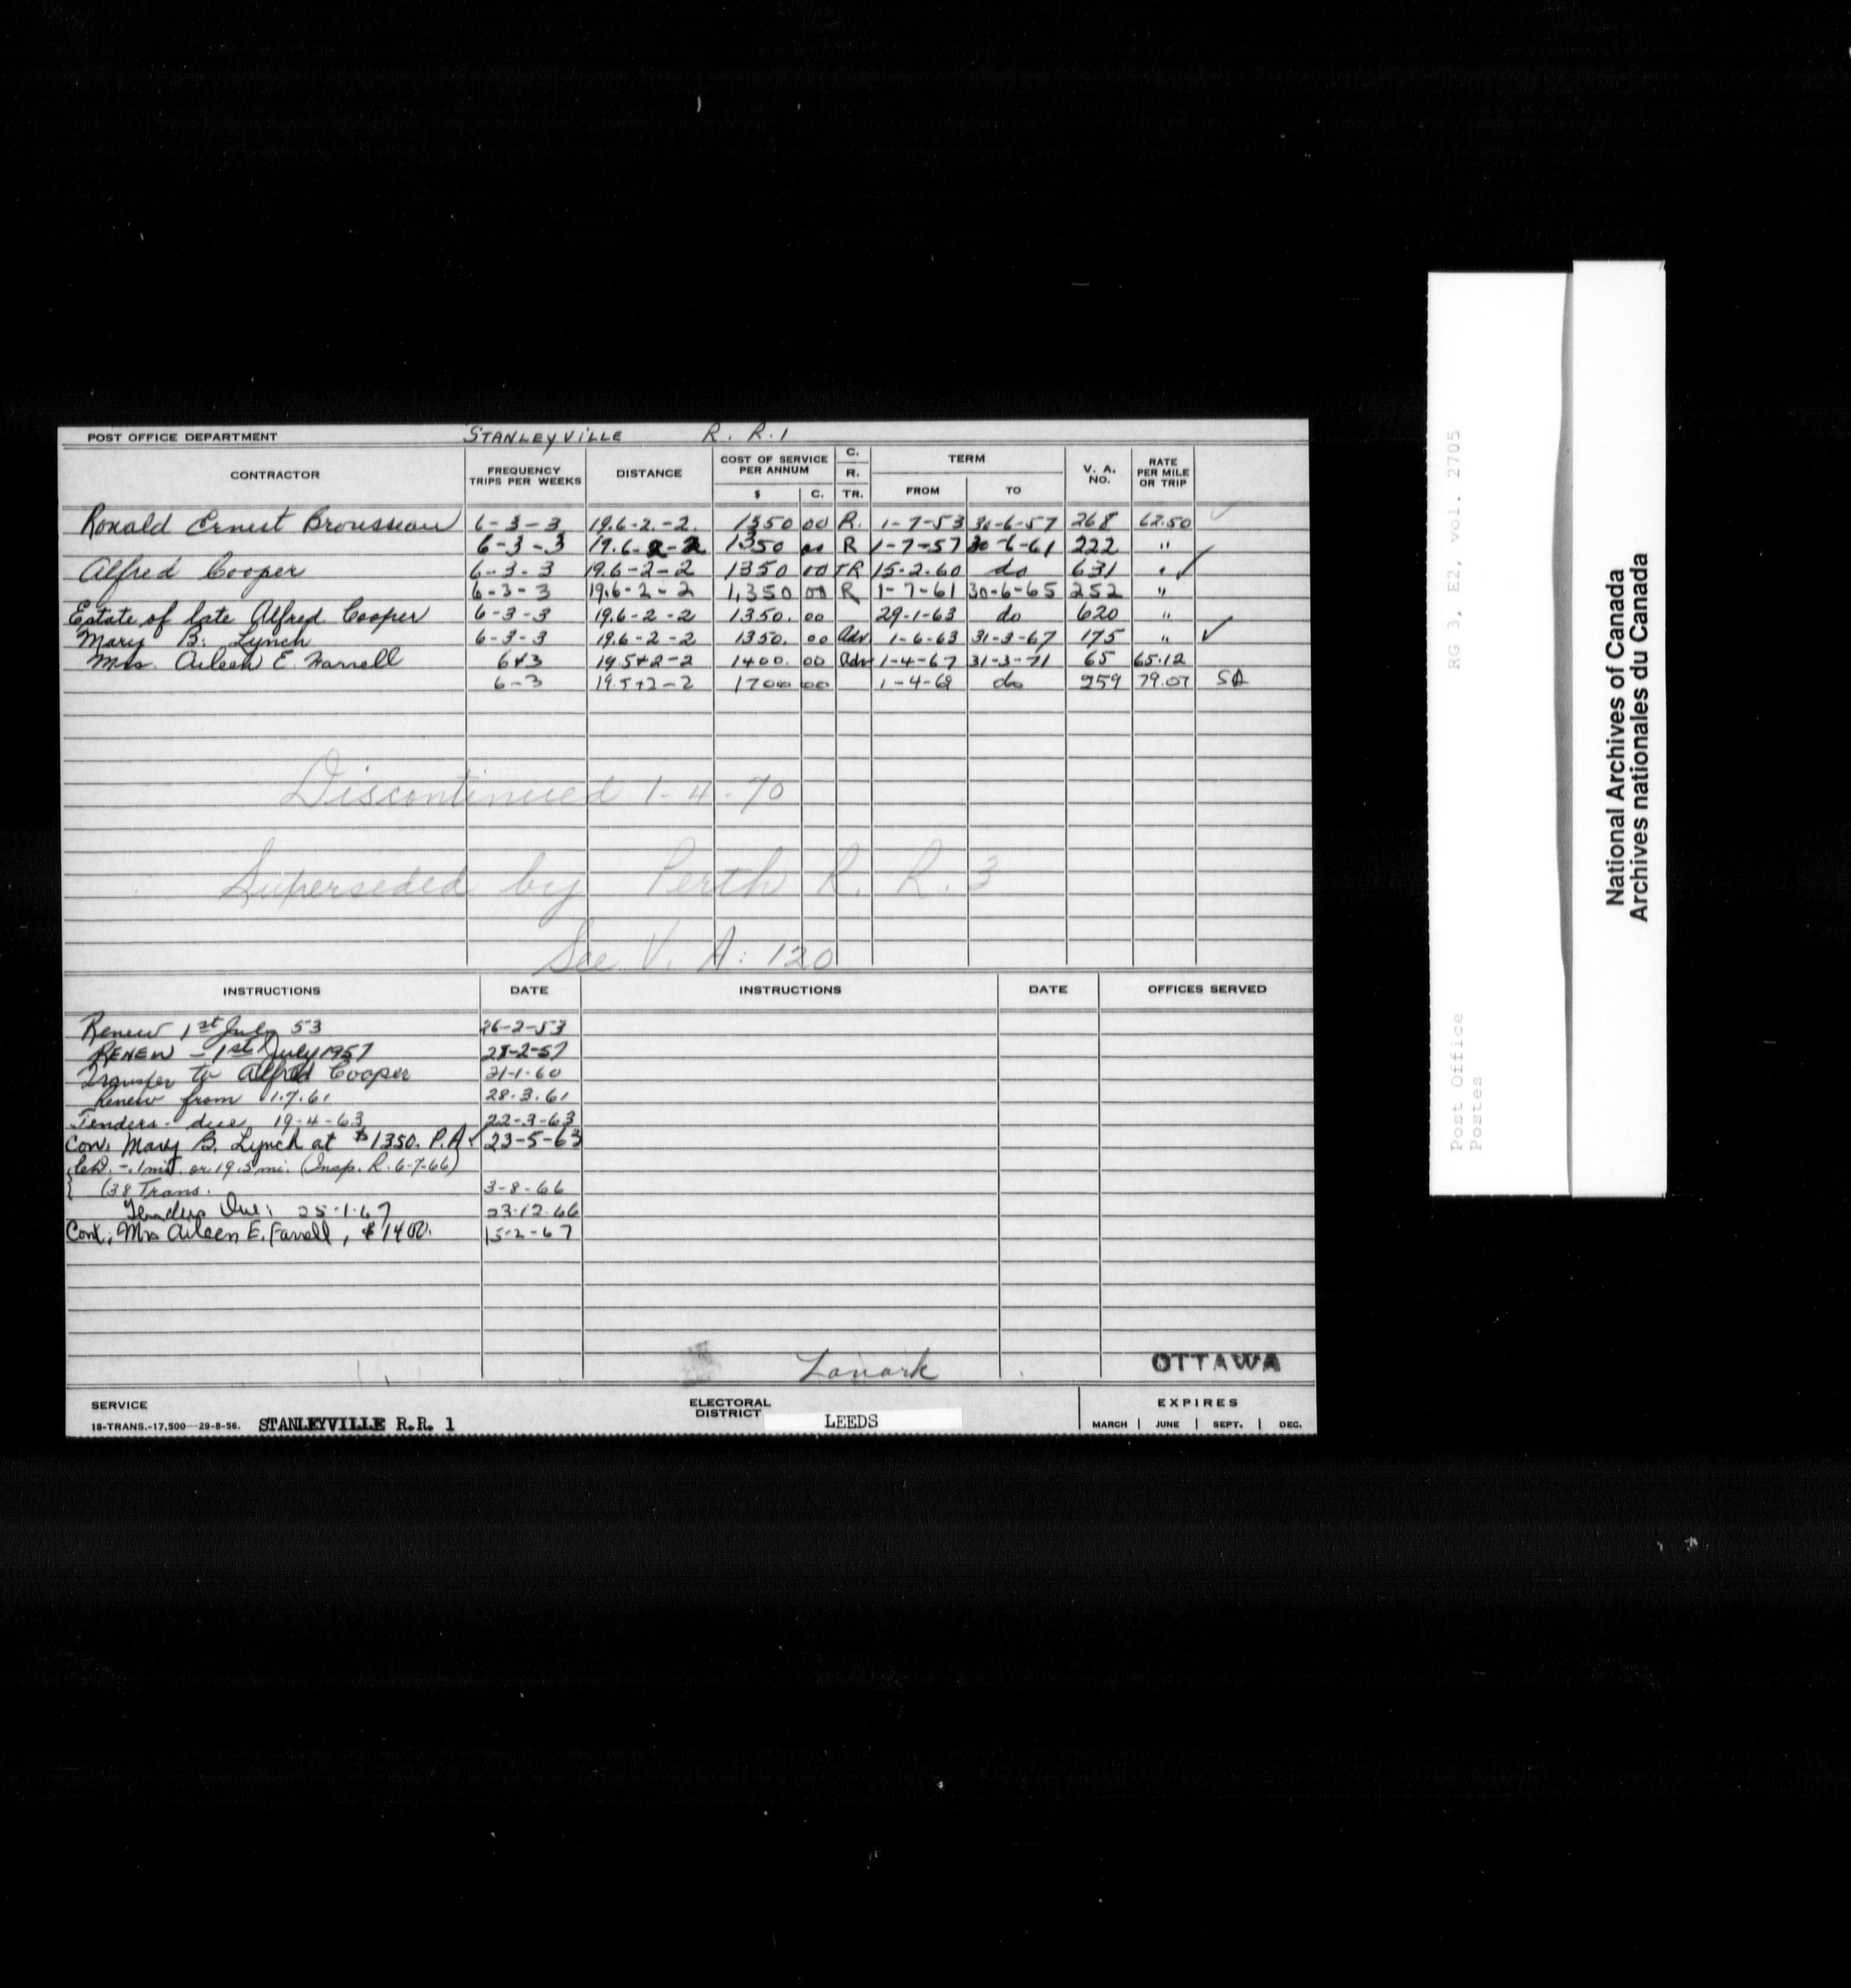 POST OFFICE DEPARTMENT STANLEYVILLE R. R. 1
CONTRACTOR FREQUENCY TRIPS PER WEEKS DISTANCE COST OF SERVICE PER ANNUM $ C. C. R. TR. TERM FROM TO V. A. NO. RATE PER MILE OR TRIP
Ronald Ernest Brousseau 6-3-3 19.6-2.-2. 1350 00 R. 1-7-53 30-6-57 268 62.50
6-3-3 19.6-2-2 1350 00 R 1-7-57 30-6-61 222 "
Alfred Cooper 6-3-3 19.6-2-2 1350 00 TR 15-2-60 do 631 " ✓
6-3-3 19.6-2-2 1,350 00 R 1-7-61 30-6-65 252 "
Estate of late Alfred Cooper 6-3-3 19.6-2-2 1350. 00 29-1-63 do 620 "
Mary B. Lynch 6-3-3 19.6-2-2 1350. 00 Adv 1-6-63 31-3-67 175 " ✓
Mrs. Aileen E. Farrell 6+3 19.5+2-2 1400. 00 Adv 1-4-67 31-3-71 65 65.12
6-3 19.5+2-2 1700 00 1-4-69 do 259 79.07 SA
Discontinued 1-4-70
Superseded by Perth R. R. 3
See V. A: 120
INSTRUCTIONS DATE INSTRUCTIONS DATE OFFICES SERVED
Renew 1st July 53 26-2-53
RENEW - 1st July 1957 21-2-57
Transfer to Alfred Cooper 21-1-60
Renew from 1.7.61 28.3.61
Tenders due 19-4-63 22-3-63
Con. Mary B. Lynch at $1350. P.A. ✓ 23-5-63
-.1mi. or 19.5 mi. (Insp. R. 6-7-66)
(38 Trans. 3-8-66
Tenders Due: 25-1-67 23.12.66
Cont. Mrs Aileen E. Farrell, $1400. 15-2-67
Lanark OTTAWA
SERVICE ELECTORAL DISTRICT LEEDS EXPIRES
18-TRANS.-17,500—29-8-56. STANLEYVILLE R.R. 1 MARCH | JUNE | SEPT. | DEC.
RG 3, E2, vol. 2705
Post Office
Postes
National Archives of Canada
Archives nationales du Canada